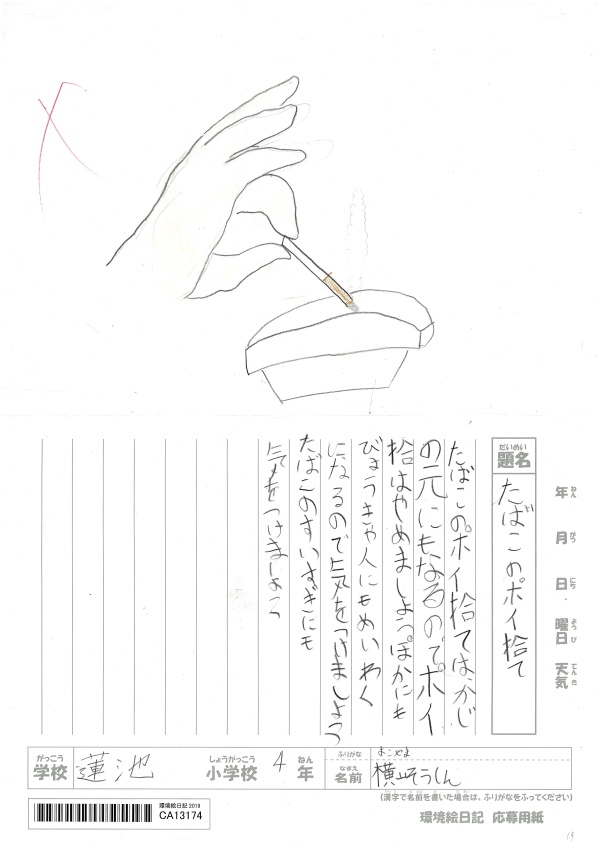 だいめい
題名
たばこのポイ捨て
年 ねん
月 がつ
日 にち
・
曜日 ようび
天気 てんき
たばこのポイ捨ては、かじ
の元にもなるのでポイ
捨はやめましょうほかにも
びょうきや人にもめいわく
になるので気をつけましょう
たばこのすいすぎにも
気をつけましょう
がっこう
学校
蓮池
しょうがっこう
小学校
4
ねん
年
ふりがな
なまえ
名前
そうしん
(漢字で名前を書いた場合は、ふりがなをふってください)
環境絵日記 2019
CA13174
環境絵日記 応募用紙